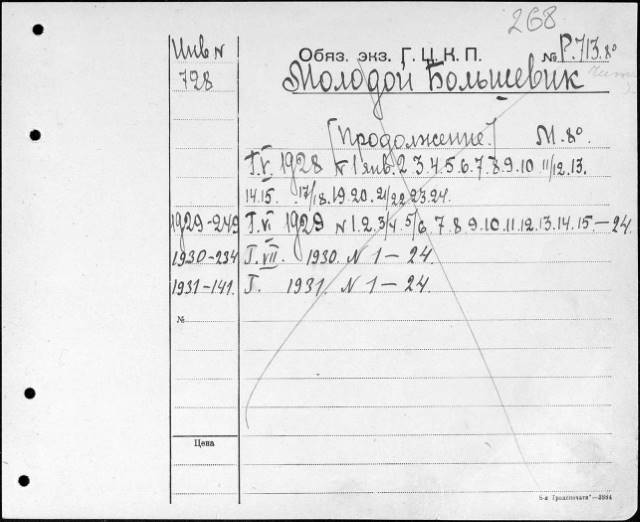 268
Инв N
728
Обяз. экз. Г. Ц. К. П. № Р.713.8º
Молодой Большевик
[Продолжение.] М. 8º.
Т.V. 1928 N 1 янв. 2 3.4.5.6.7.8.9.10 11/12.13.
14.15. 17/18.19.20.21/22.23.24.
1929-249 Т.VI 1929 N 1.2.3/4.5/6.7.8.9.10.11.12.13.14.15.—24.
1930-234 Т.VII. 1930. N 1—24.
1931-141. Т. 1931. N 1—24.
№
Цена
6-я Гродпечати"—3884